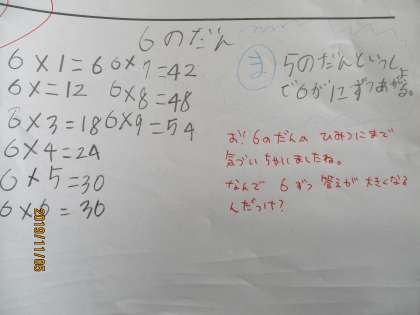 6のだん
6×1=6
6×=12
6×3=18
6×4=24
6×5=30
6×6=30
6×7=42
6×8=48
6×9=54
ま
5のだんといっしょ
で6が
ずつあがる。
お!6のだんのひみつにまで
気づいちゃいましたね。
なんで6ずつ答えが大きくなる
んだっけ?
2019/11/05